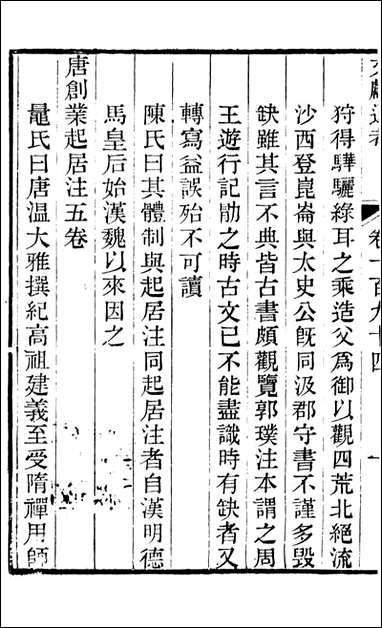 文獻通考 卷一百九十四 一
狩得驊騮綠耳之乘造父爲御以觀四荒北絕流
沙西登崑崙與太史公旣同汲郡守書不謹多毀
缺雖其言不典皆古書頗觀覽郭璞注本謂之周
王遊行記勛之時古文已不能盡識時有缺者又
轉寫益誤殆不可讀
陳氏曰其體制與起居注同起居注者自漢明德
馬皇后始漢魏以來因之
唐創業起居注五卷
鼂氏曰唐温大雅撰紀高祖建義至受隋禪用師